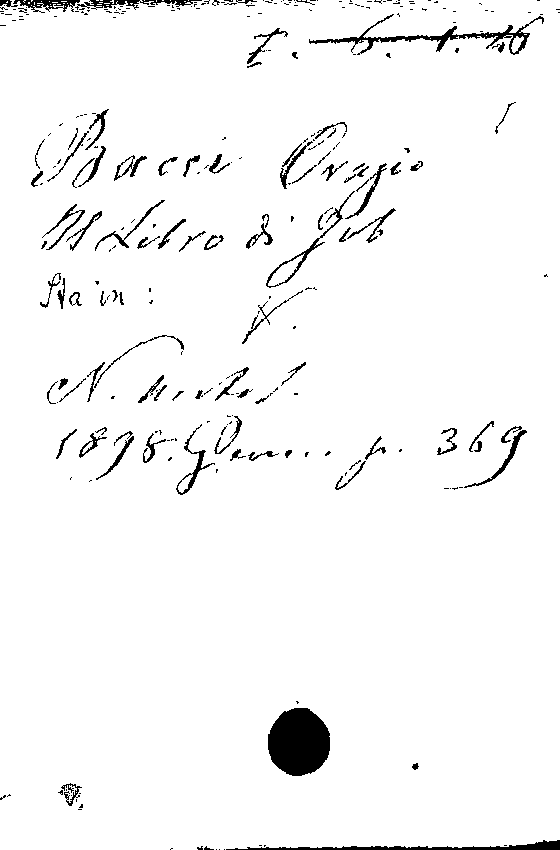 Z. 6. 1. 26
Bacci Orazio
Il Libro di Job
Sta in :
V.
N.
1898. Genn. p. 369